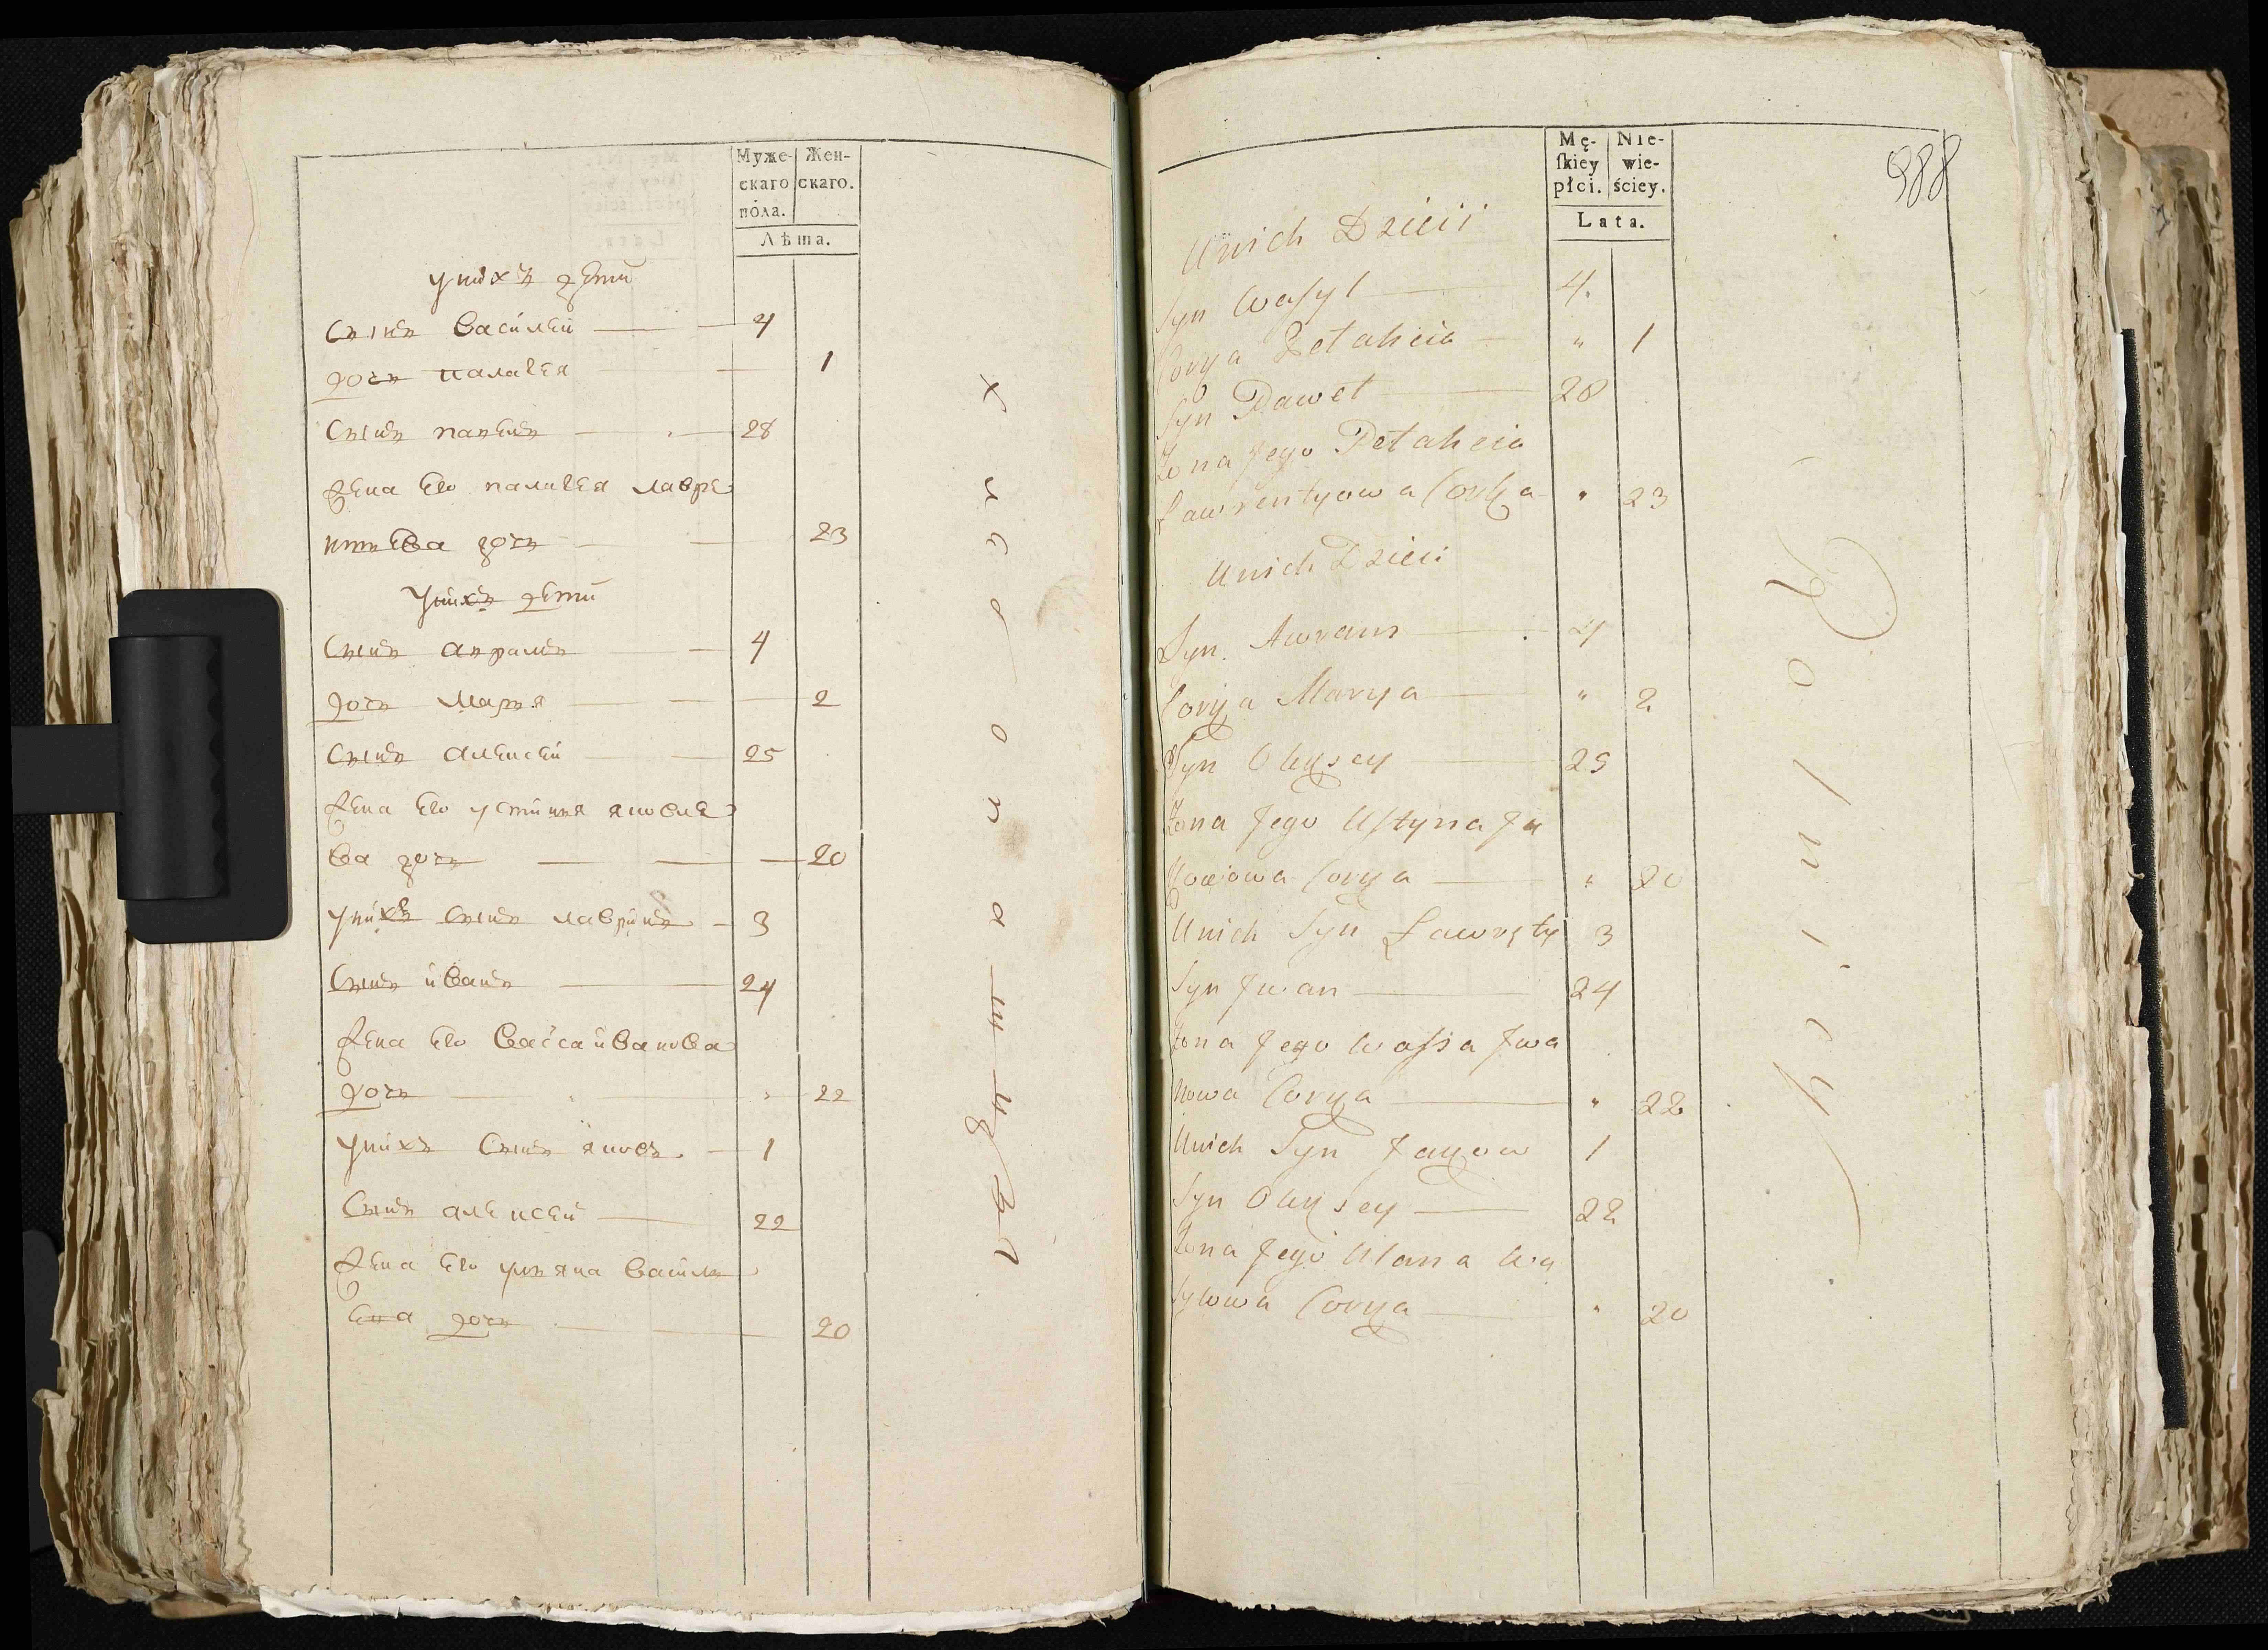 Муже-
скаго
по́ла.
Жен-
скаго.
Лѣта.
у нихъ дети
Сынъ Василей 4
дочь палагея 1
Сынъ павелъ 28
жена его палагея лавре
нтьева дочь 23
у нихъ дети
Сынъ аврамъ 4
дочь Марья 2
Сынъ алексей 25
жена его устинья яковле
ва дочь 20
у нихъ Сынъ 3
Сынъ иванъ 24
жена его Васса иванова
дочь 22
у нихъ Сынъ яковъ 1
Сынъ алексей 22
жена его ульяна Василь
ева дочь 20
Mę-
ſkiey
płci.
Nie-
wie-
ściey.
Lata.
988
Unich Dzieci
Syn Waſyl 4.
Corka Pelaheia " 1
Syn Paweł 28
Zona Jego Pelaheia
Ławrentyowa Corka " 23
Unich Dzieci
Syn Awram 4
Corka Marya " 2
Syn Olexsey 25
Zona Jego Uſtyna Ja
kowowa Corka " 20
Unich Syn 3
Syn Jwan 24
Zona Jego Waſsa Jwa
nowa Corka " 22
Unich Syn Jakow 1
Syn Olexsey 22
Zona Jego Ulana Wa
sylowa Corka " 20